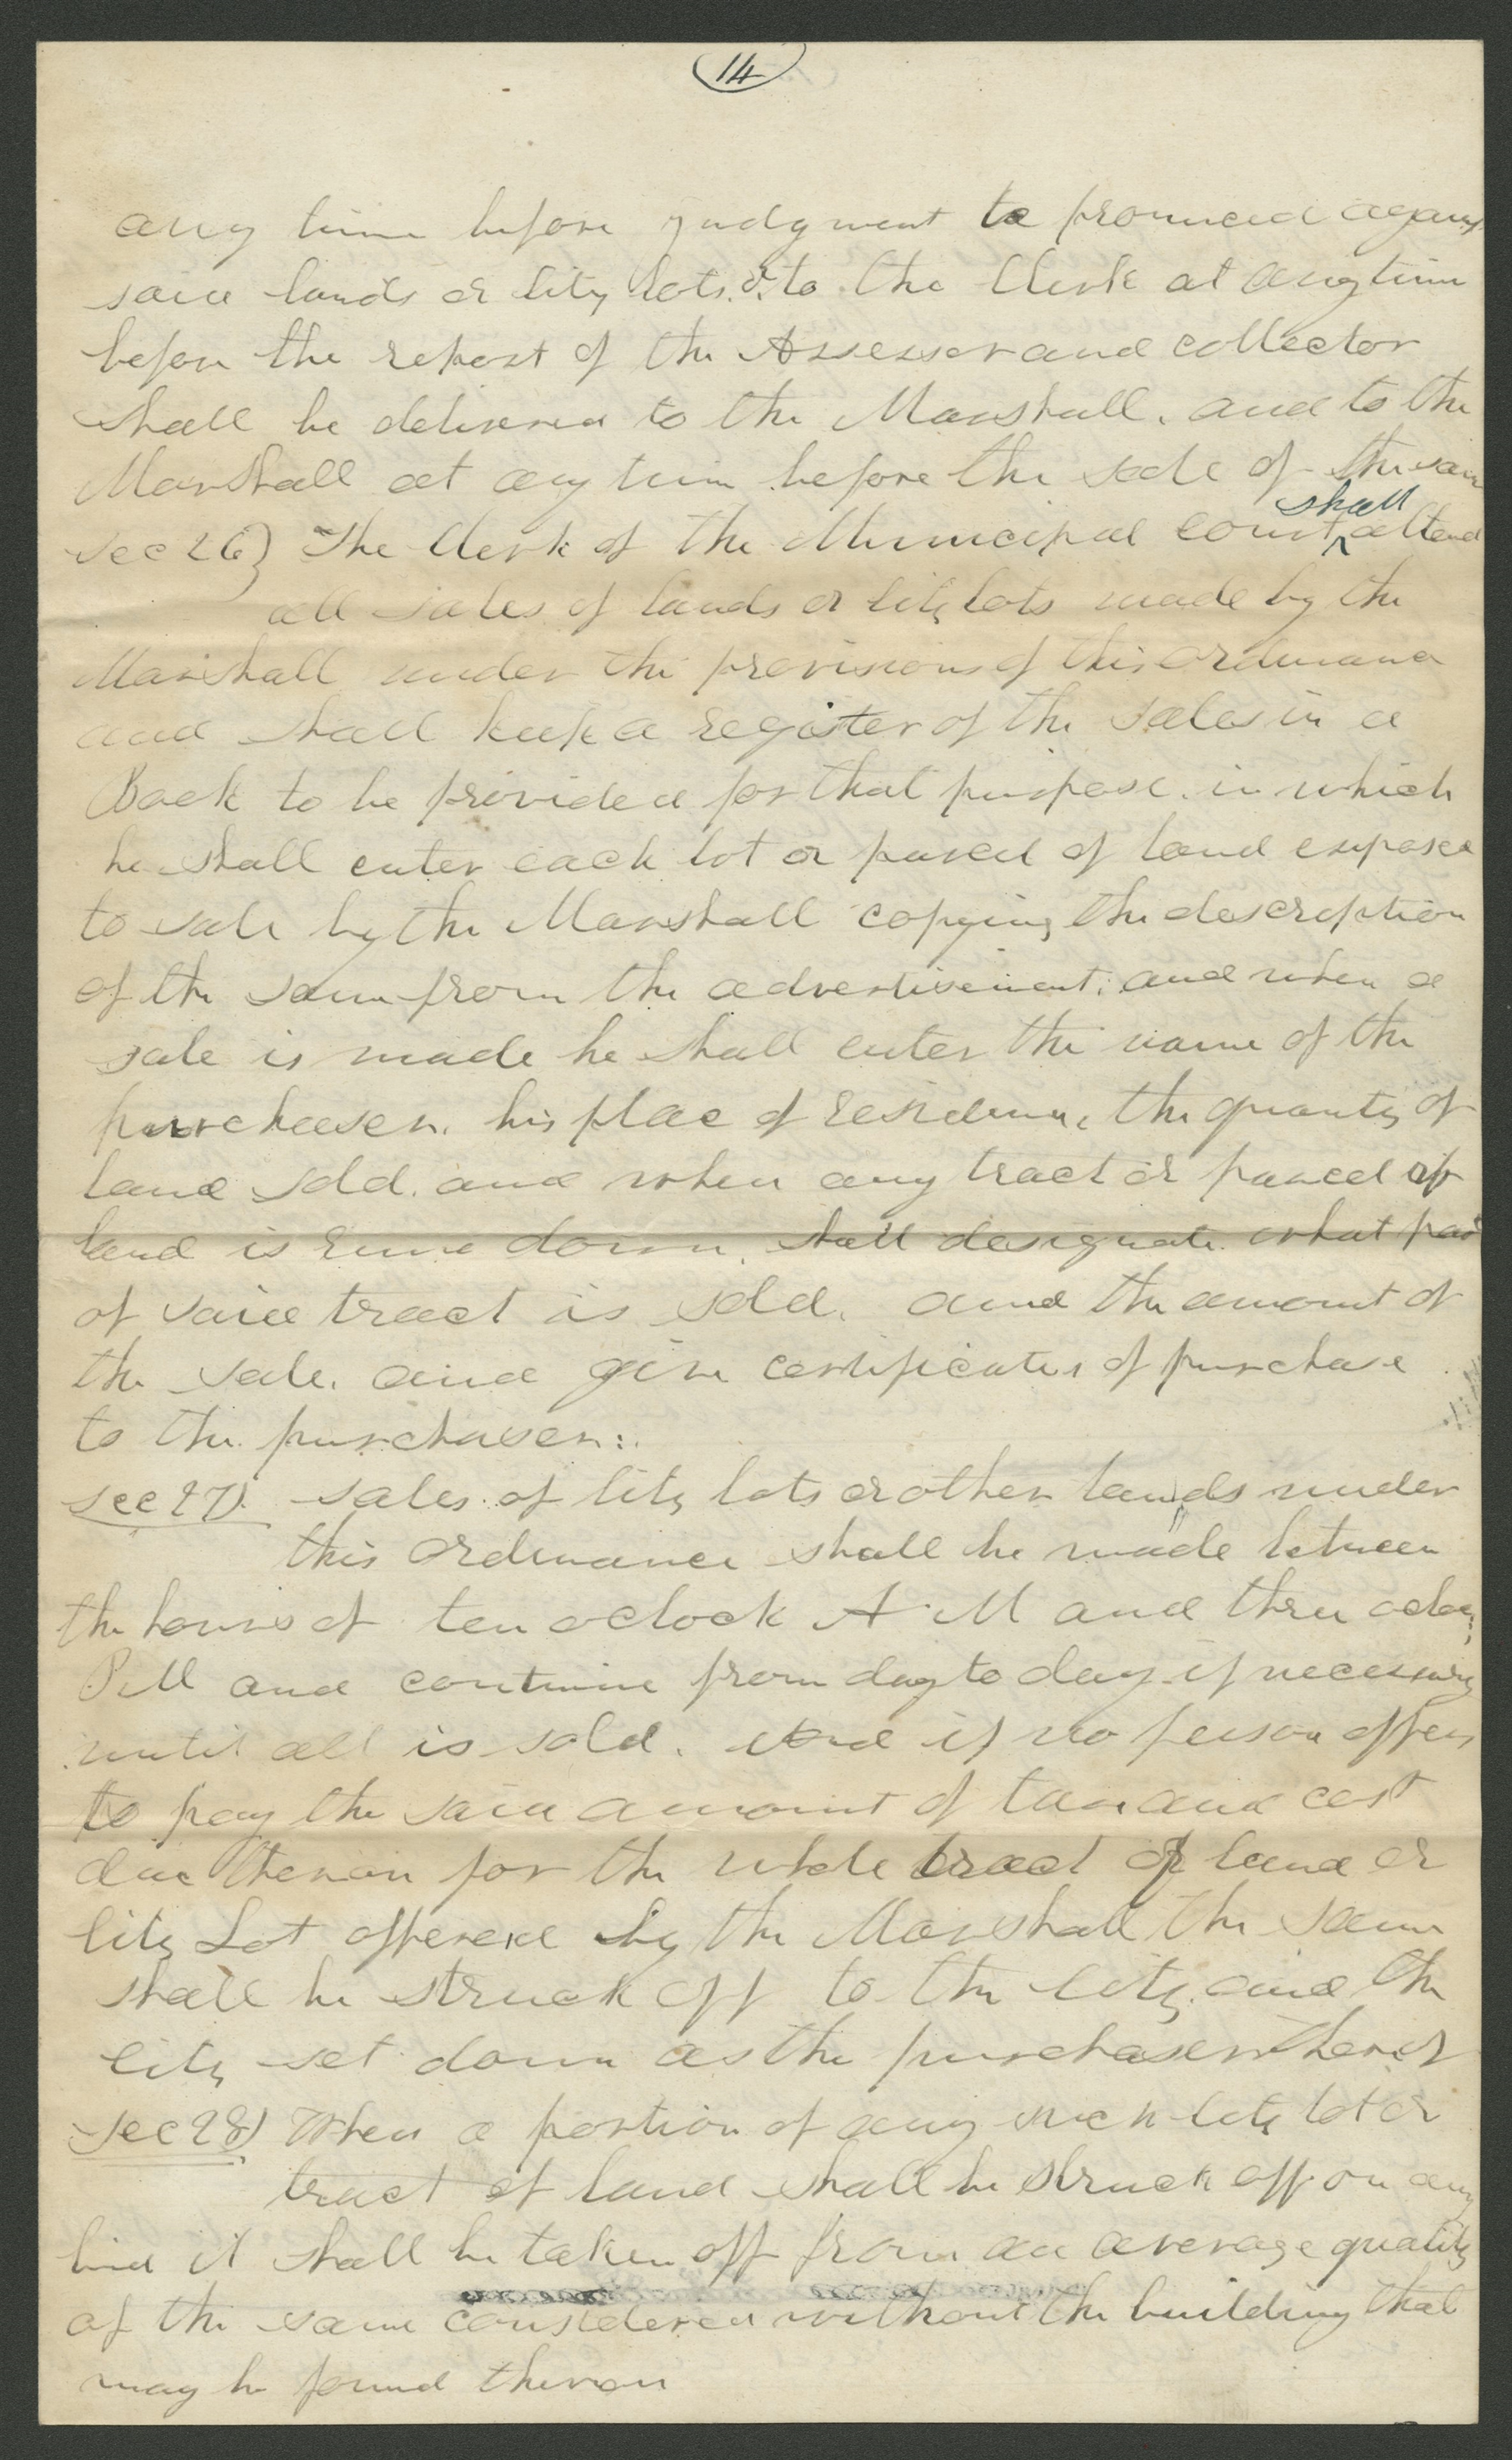 14
any time before judgment be pronunced against
said lands or City lots. & to the Clerk at any time
before the report of the Assessor and collector
shall be delivered to the Marshall. and to the
Marshall at any time before the sale of the said
shall
Sec 26} The Clerk of the Municipal court ^ attend
all sales of lands or City lots made by the
Marshall under the provisions of this ordinance
and shall keep a register of the sales in a
Book to be provided for that purpose. in which
he shall enter each lot or parcel of land exposed
to sale by the Marshall copying the description
of the same from the advertisement; and when a
sale is made he shall enter the name of the
purchaser. his place of residence, the quantity of
land sold. and when any tract or parcel of
land is down, shall designate what part
of said tract is sold. and the amount of
the sale. and give certificates of purchase
to the purchaser:.
Sec 27). Sales of City lots or other lands under
this ordinance shall be made between
the hours of ten oclock A. M and three oclock
P. M and continue from day to day if necessary
until all is sold. And if no person offers
to pay the said amount of tax and cost
due thereon for the whole tract of land or
City Lot offered by the Marshall the same
shall be struck off to the City. and the
City set down as the purchaser thereof
Sec 28) When a portion of any such City lot or
tract of land shall be struck off on any
bid it shall be taken off from an average quality
of the same considered without the building that
may be found thereon